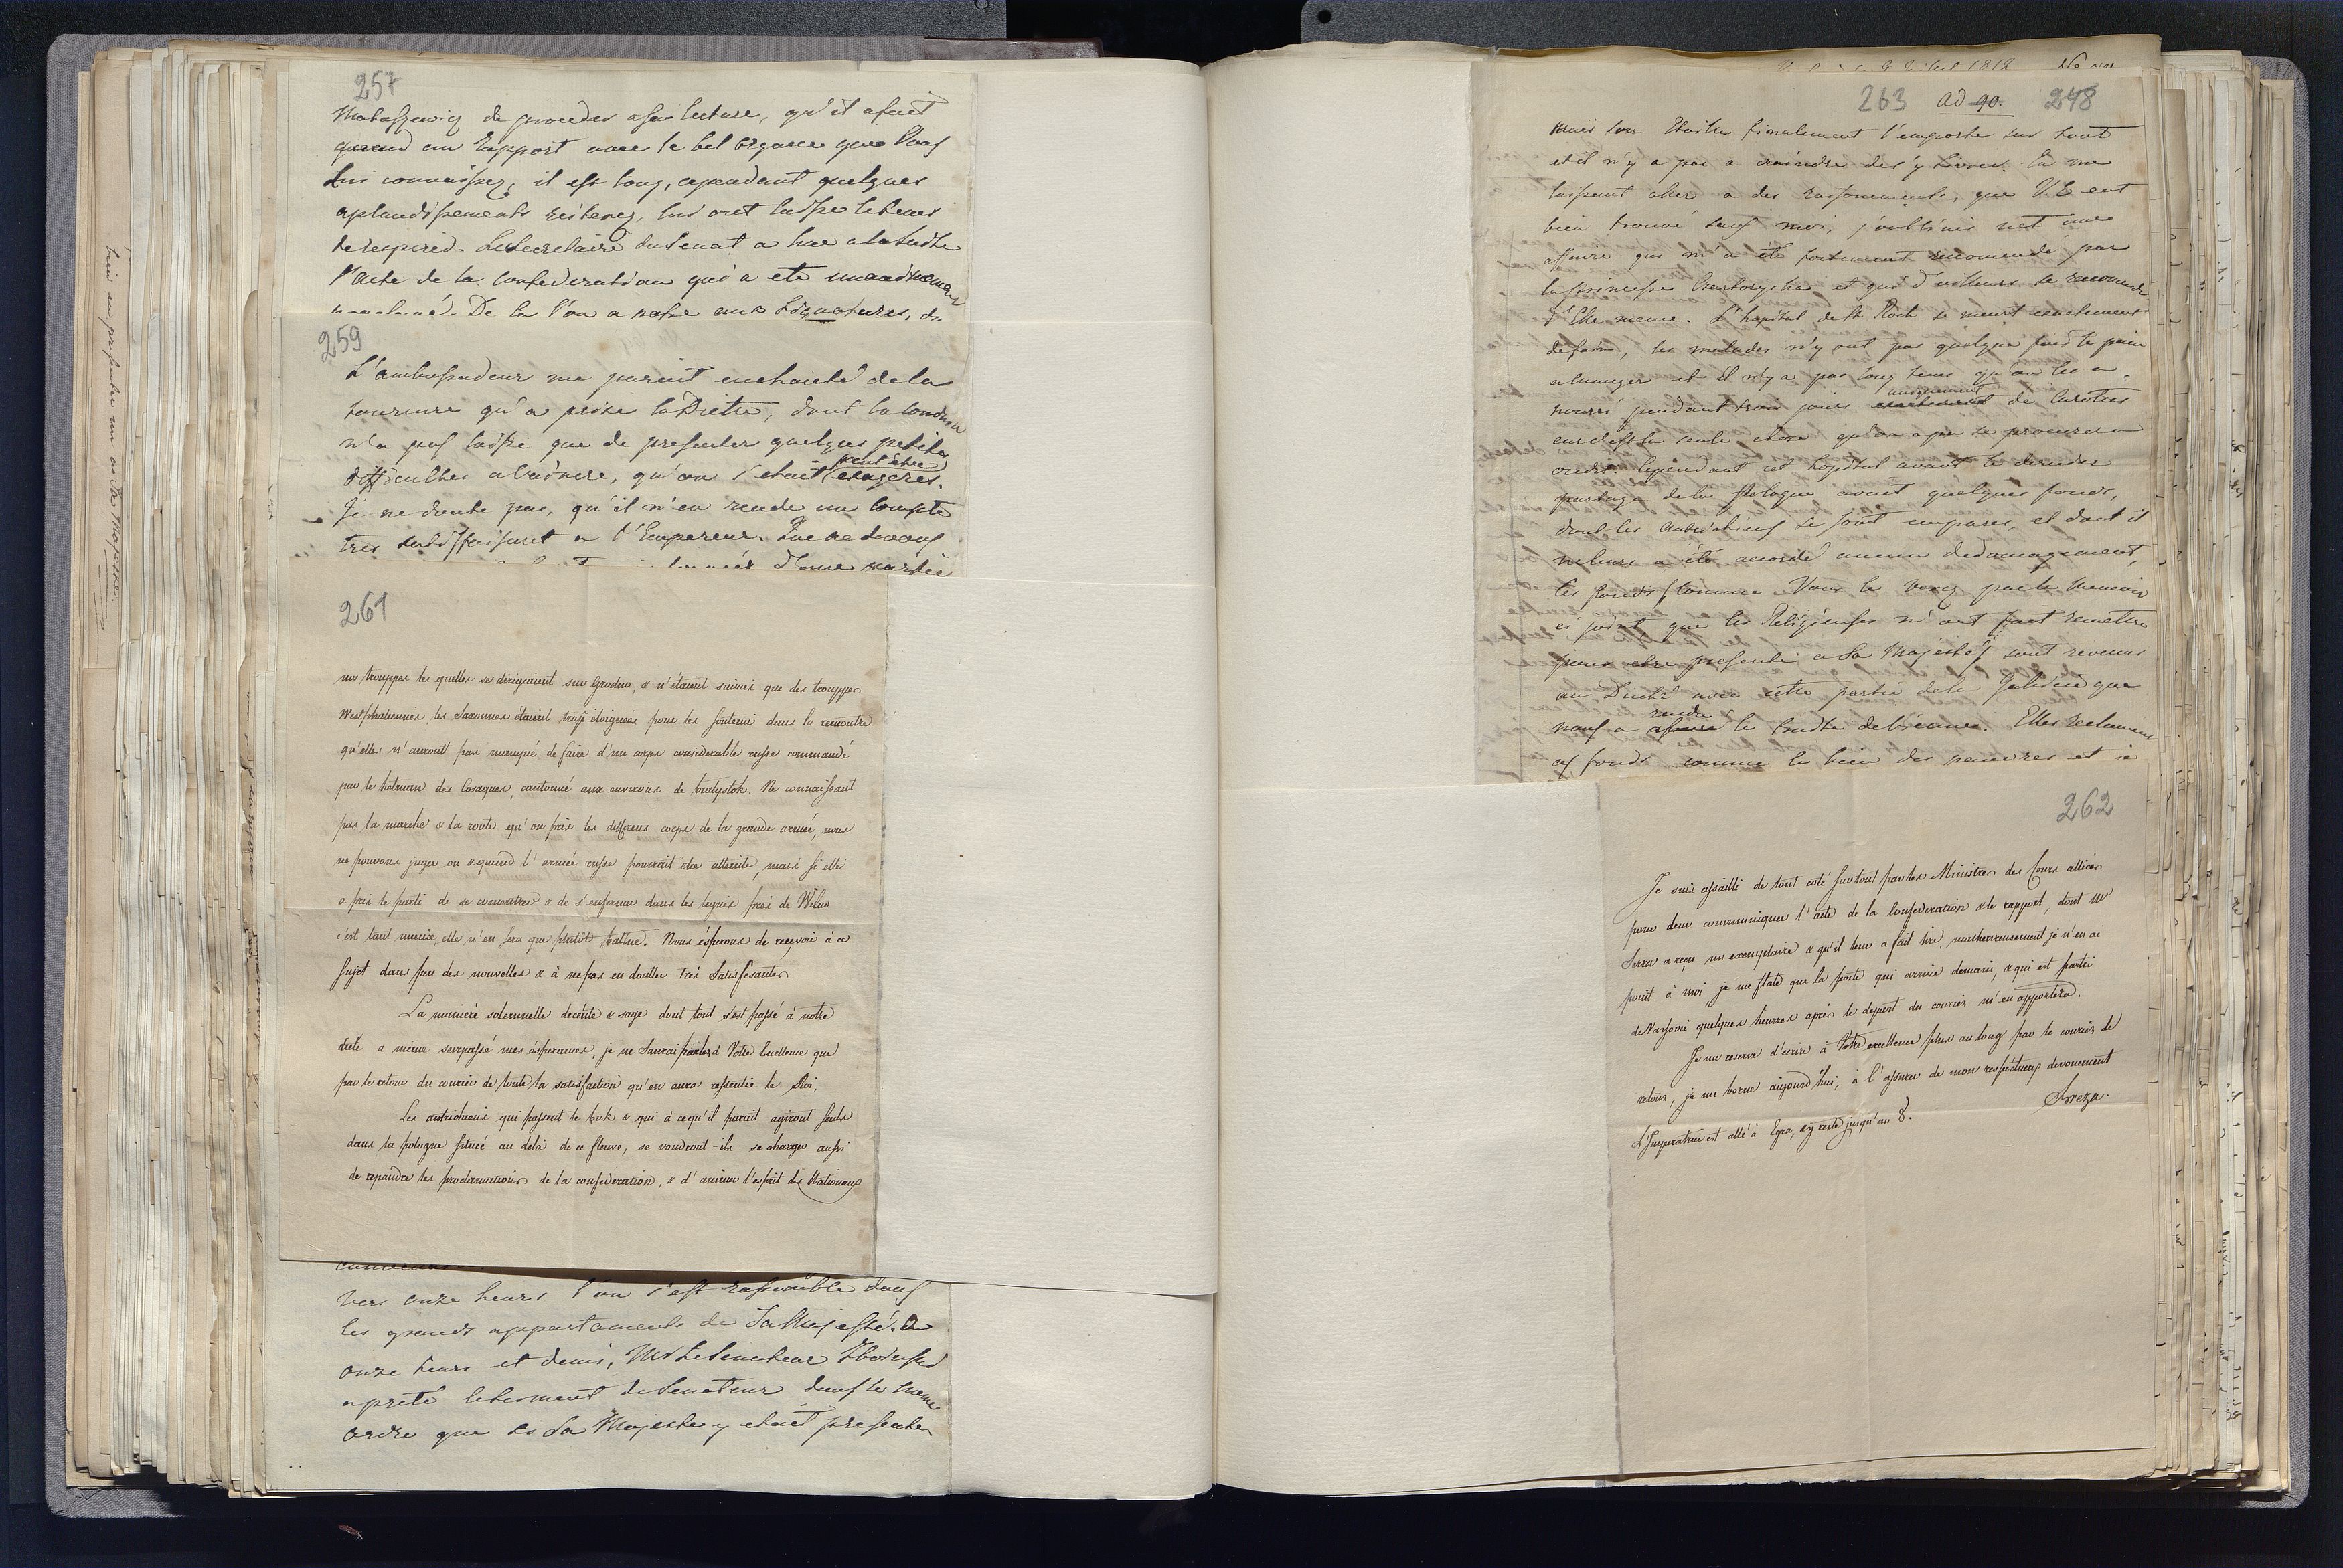 257
Matassewicz de proceder a sa lecture, qu'il a fait
quand au rapport avec le bel organe que Vous
lui connaissez, il est long, cependant quelques
aplaudissements reiterez, lui ont laisse le tems
de respirer. Le Secretaire du Senat a lue a la suite
l'acte de la Confederation qui a ete unanimement
De la l'on a passe aux signatures,
259
L'ambassadeur me parait enchanté de la
tournure qu'a prise la Diette, dont la conduite
n'a pas laisse que de presenter quelques petites
difficultes a vaincre, qu'on s'etait peut être exageres.
Je ne doute pas, qu'il n'en rende un compte
tres satisfaisant a l'Empereur. Que ne devons
d'une partie
261
nos trouppes les quelles se dirigeaient sur Grodno, & n'étaient suivies que des trouppes
Westphaliennes, les Saxonnes étaient trop éloignées pour les soutenir dans la rencontre
qu'elles n'auront pas manqué de faire d'un corps considerable russe commandé
par le hetman des Cosaques, cantonné aux environs de Białystok. Ne connaissant
pas la marche & la route qu'on pris les differens corps de la grande armée, nous
ne pouvons juger ou & quand l'armée russe pourrait etre atteinte, mais si elle
a pris le parti de se concentrer & de s'enfermer dans les lignes près de Wilno
c'est tant mieux, elle n'en sera que plutôt battue. Nous ésperons de reçevoir à ce
sujet dans peu des nouvelles & à ne pas en doutter très satisfesantes
La manière solemnelle décente & sage dont tout s'est passé à notre
diete a meme surpassé mes ésperances, je ne saurai parler à Votre Excellence que
par le retour du courier de toute la satisfaction qu'en aura ressentie le Roi.
Les autrichiens qui passent le Buk & qui à ce qu'il parait agiront seuls
dans la pologne située au delà de ce fleuve, se voudront-ils se charger aussi
de repandre les proclamations de la confederation, & d'animer l'esprit des Nationaux
Vers onze heurs l'on s'est rassemble dans
les grands appartaments de Sa Majesté. A
onze heurs et demi, Mr le Senateur
a prêté le serment de Senateur dans le meme
ordre que si Sa Majeste y etait presente
bien en presenter un acte Majesté.
1812 No
263 ad 90. 248
mais son Etoile finalement l'emporte sur tout
et il n'y a pas a craindre de s'y livrer. En me
laissant aller a des raisonements, que V. E. eut
bien trouvé sans moi, j'oubliais net une
affaire qui m'a été fortement recomandé par
la Princesse Czartoryska et qui d'ailleurs se recomande
d'Elle meme. L'hopital de St Roch se meurt exactement
de faim, les malades n'y ont pas quelque fois le pain
a manger et il n'y a pas long tems qu'on les a
nourri pendant trois jours uniquement de Carottes
car c'est la seule chose qu'on a pu se procurer a
credit. Cependant cet hopital avant le dernier
partage de la Pologne avait quelques fonds,
dont les Autrichiens se sont emparés, et dont il
ne leur a été accordé aucun dedomagement,
les fonds (comme Vous le verez par le memoire
ci joint que les Religieuses m'ont fait remettre
pour etre presenté a Sa Majesté) sont revenus
au Duché avec cette partie de la Galicie que
nous a rendu le traité de Vienne. Elles reclament
ces fonds comme le bien des pauvres et je
262
Je suis assailli de tout coté surtout par les Ministres des Cours alliées
pour leur communiquer l'acte de la Confederation & le rapport, dont Mr
Serra a reçu un exemplaire & qu'il leur a fait lire, malheureusement je n'en ai
point à moi, je me flate que la poste qui arrive demain, & qui est partie
de Varsovie quelques heurres après le depart du courier m'en apportera.
Je me reserve d'ecrire à Votre excellence plus au long par le courier de
retour, je me borne aujourd'hui, à l'assurer de mon respéctueux devouement
Breza.
L'Imperatrice est allé à Egra, & y reste jusqu'au 8.